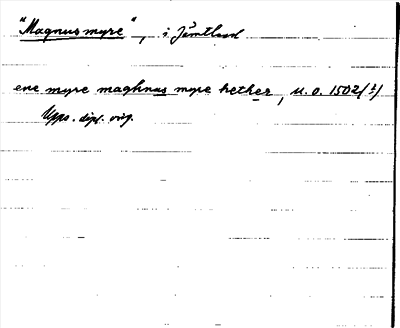 "Magnus myre", i Jämtland
ene myre maghnus myre hether, U. o. 1502(?)
Upps. dipl. orig.